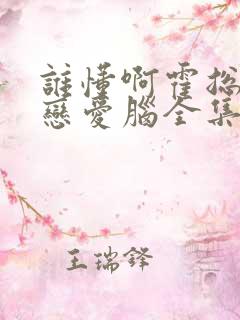 誰懂啊霍総
戀愛腦全集
王瑞鋒